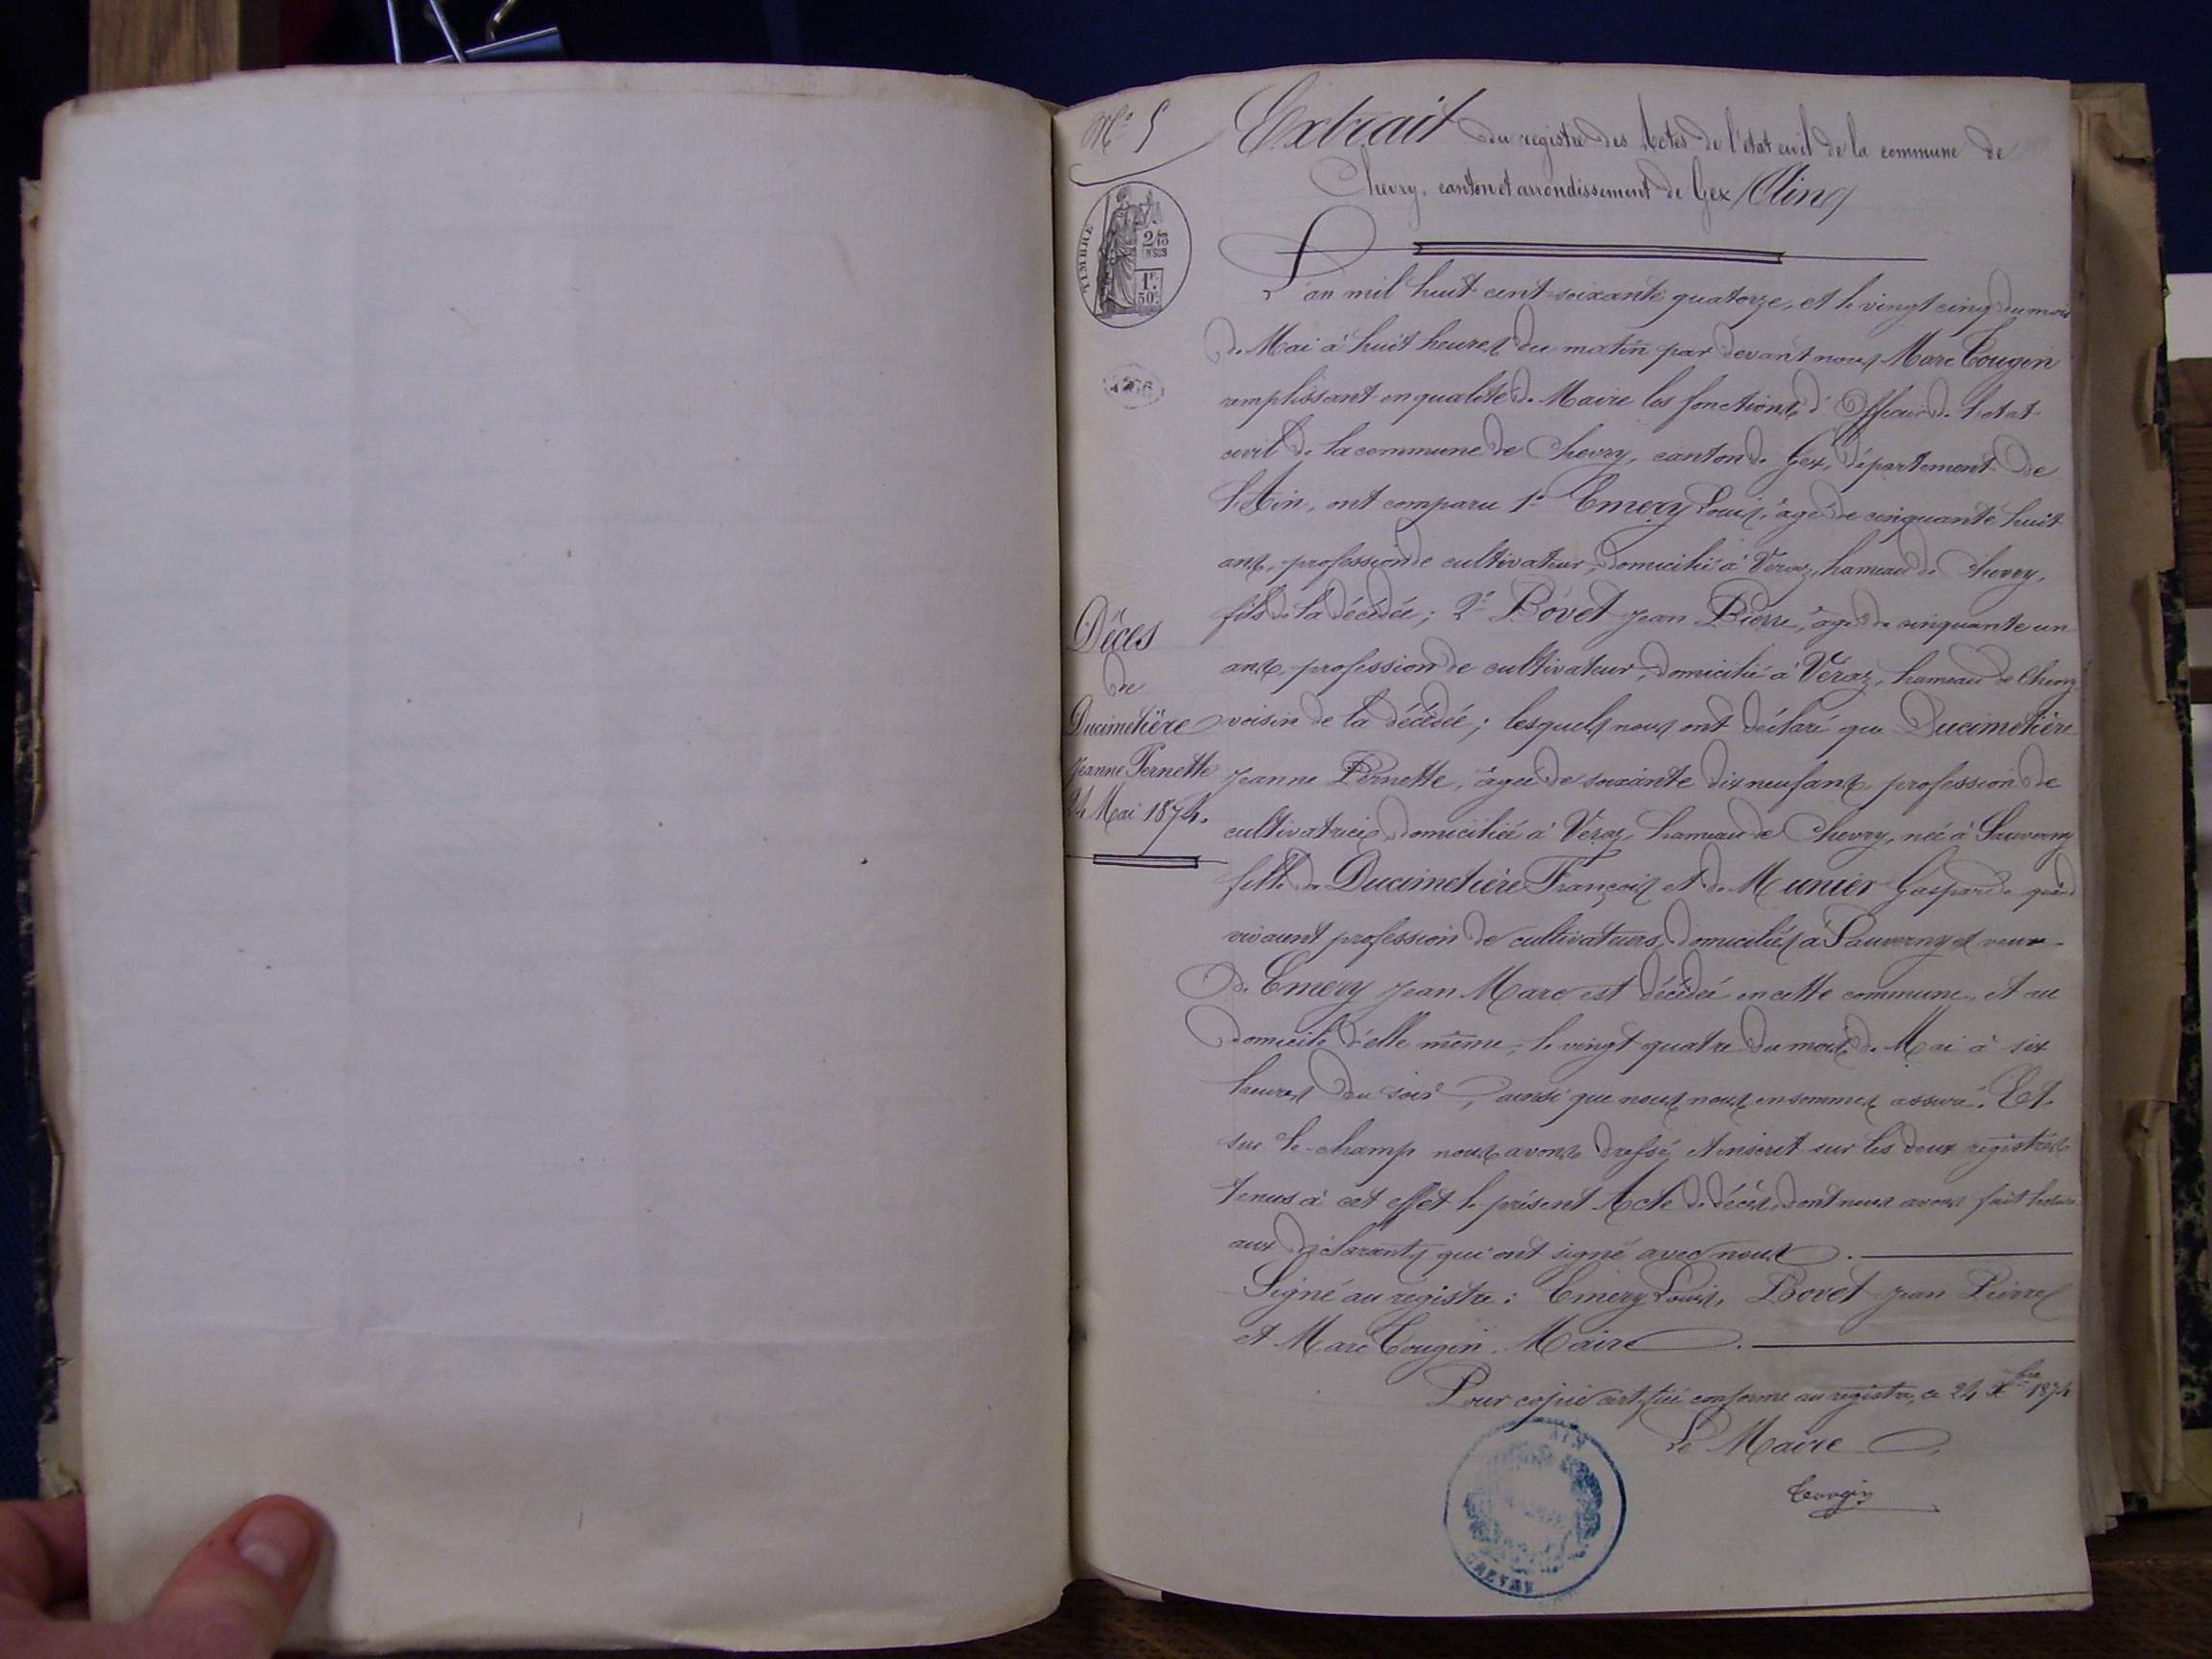 N° 5
Extrait du registre des Actes de l'état civil de la commune de
Chevry, canton et arrondissement de Gex (Ain)
TIMBRE
2/10
EN SUS
1F.
50c.
L'an mil huit cent soixante quatorze, et le vingt cinq du mois
de Mai à huit heures du matin par devant nous Marc Tougin
remplissant en qualité de Maire les fonctions d'Officier de l'état
civil de la commune de Chevry, canton de Gex, département de
l'Ain, ont comparu 1° Emery Louis, âgé de cinquante huit
ans, profession de cultivateur, domicilié à Véraz, hameau de Chevry,
fils de la décédée; 2° Bovet Jean Pierre, âgé de cinquante un
ans, profession de cultivateur, domicilié à Véraz, hameau de Chevry
voisin de la décédée; lesquels nous ont déclaré que Ducimetière
Jeanne Pernette, âgée de soixante dix neuf ans, profession de
cultivatrice, domiciliée à Véraz, hameau de Chevry, née à Sauverny
fille de Ducimetière François et de Munier Gasparde quand
vivaient profession de cultivateurs, domiciliés à Sauverny et veuve
de Emery Jean Marc est décédée en cette commune, et au
domicile d'elle même, le vingt quatre du mois de Mai à six
heures du soir, ainsi que nous nous en sommes assuré. Et
sur le champ nous avons dressé et inscrit sur les deux registres
tenus à cet effet le présent Acte de décès, dont nous avons fait lecture
aux déclarants qui ont signé avec nous.
Signé au registre: Emery Louis, Bovet Jean Pierre
et Marc Tougin, Maire.
Pour copie certifiée conforme au registre, ce 24 Xbre 1874
Le Maire
Tougin
Déces
de
Ducimetière
Jeanne Pernette
24 Mai 1874.
AIN
CHEVRY